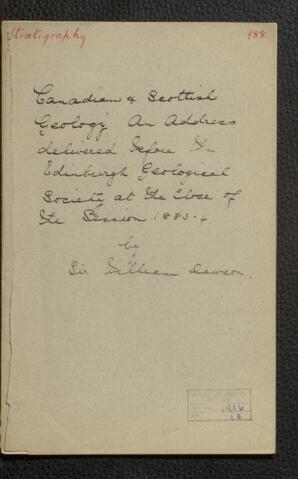 Stratigraphy
988.
Canadian & Scottish
Geology An Address
delivered before the
Edinburgh Geological
Society at the Close of
the Session 1883-4
by
Sir William Dawson.